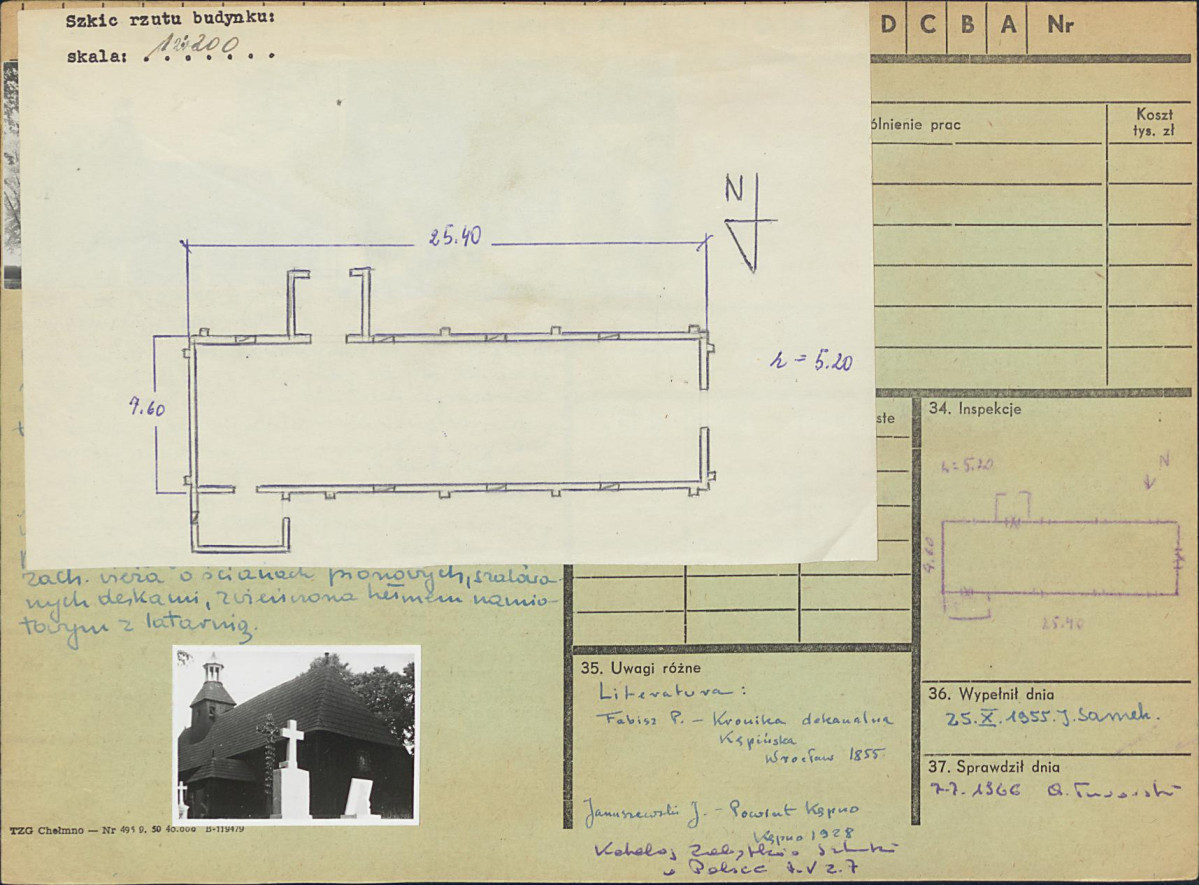 Szkic rzutu budynku:
skala: 1:200
D C B A Nr
ólnienie prac
Koszt
tys. zł
N
25.40
h = 5.20
9.60
ste
34. Inspekcje
h=5.20
N
9.60
25.40
zach. wieża o ścianach pionowych, szalowa-
nych deskami, zwieńczona hełmem namio-
towym z latarnią.
35. Uwagi różne
Literatura:
Fabisz P. – Kronika dekanalna
Kępińska
Wrocław 1855
Januszewski J. – Powiat Kępno
Kępno 1928
Katalog Zabytków Sztuki
w Polsce t. V z. 7
36. Wypełnił dnia
25.X.1955. J. Samek.
37. Sprawdził dnia
7.7. 1966
TZG Chełmno — Nr 491 9. 50 40.000 B-119479